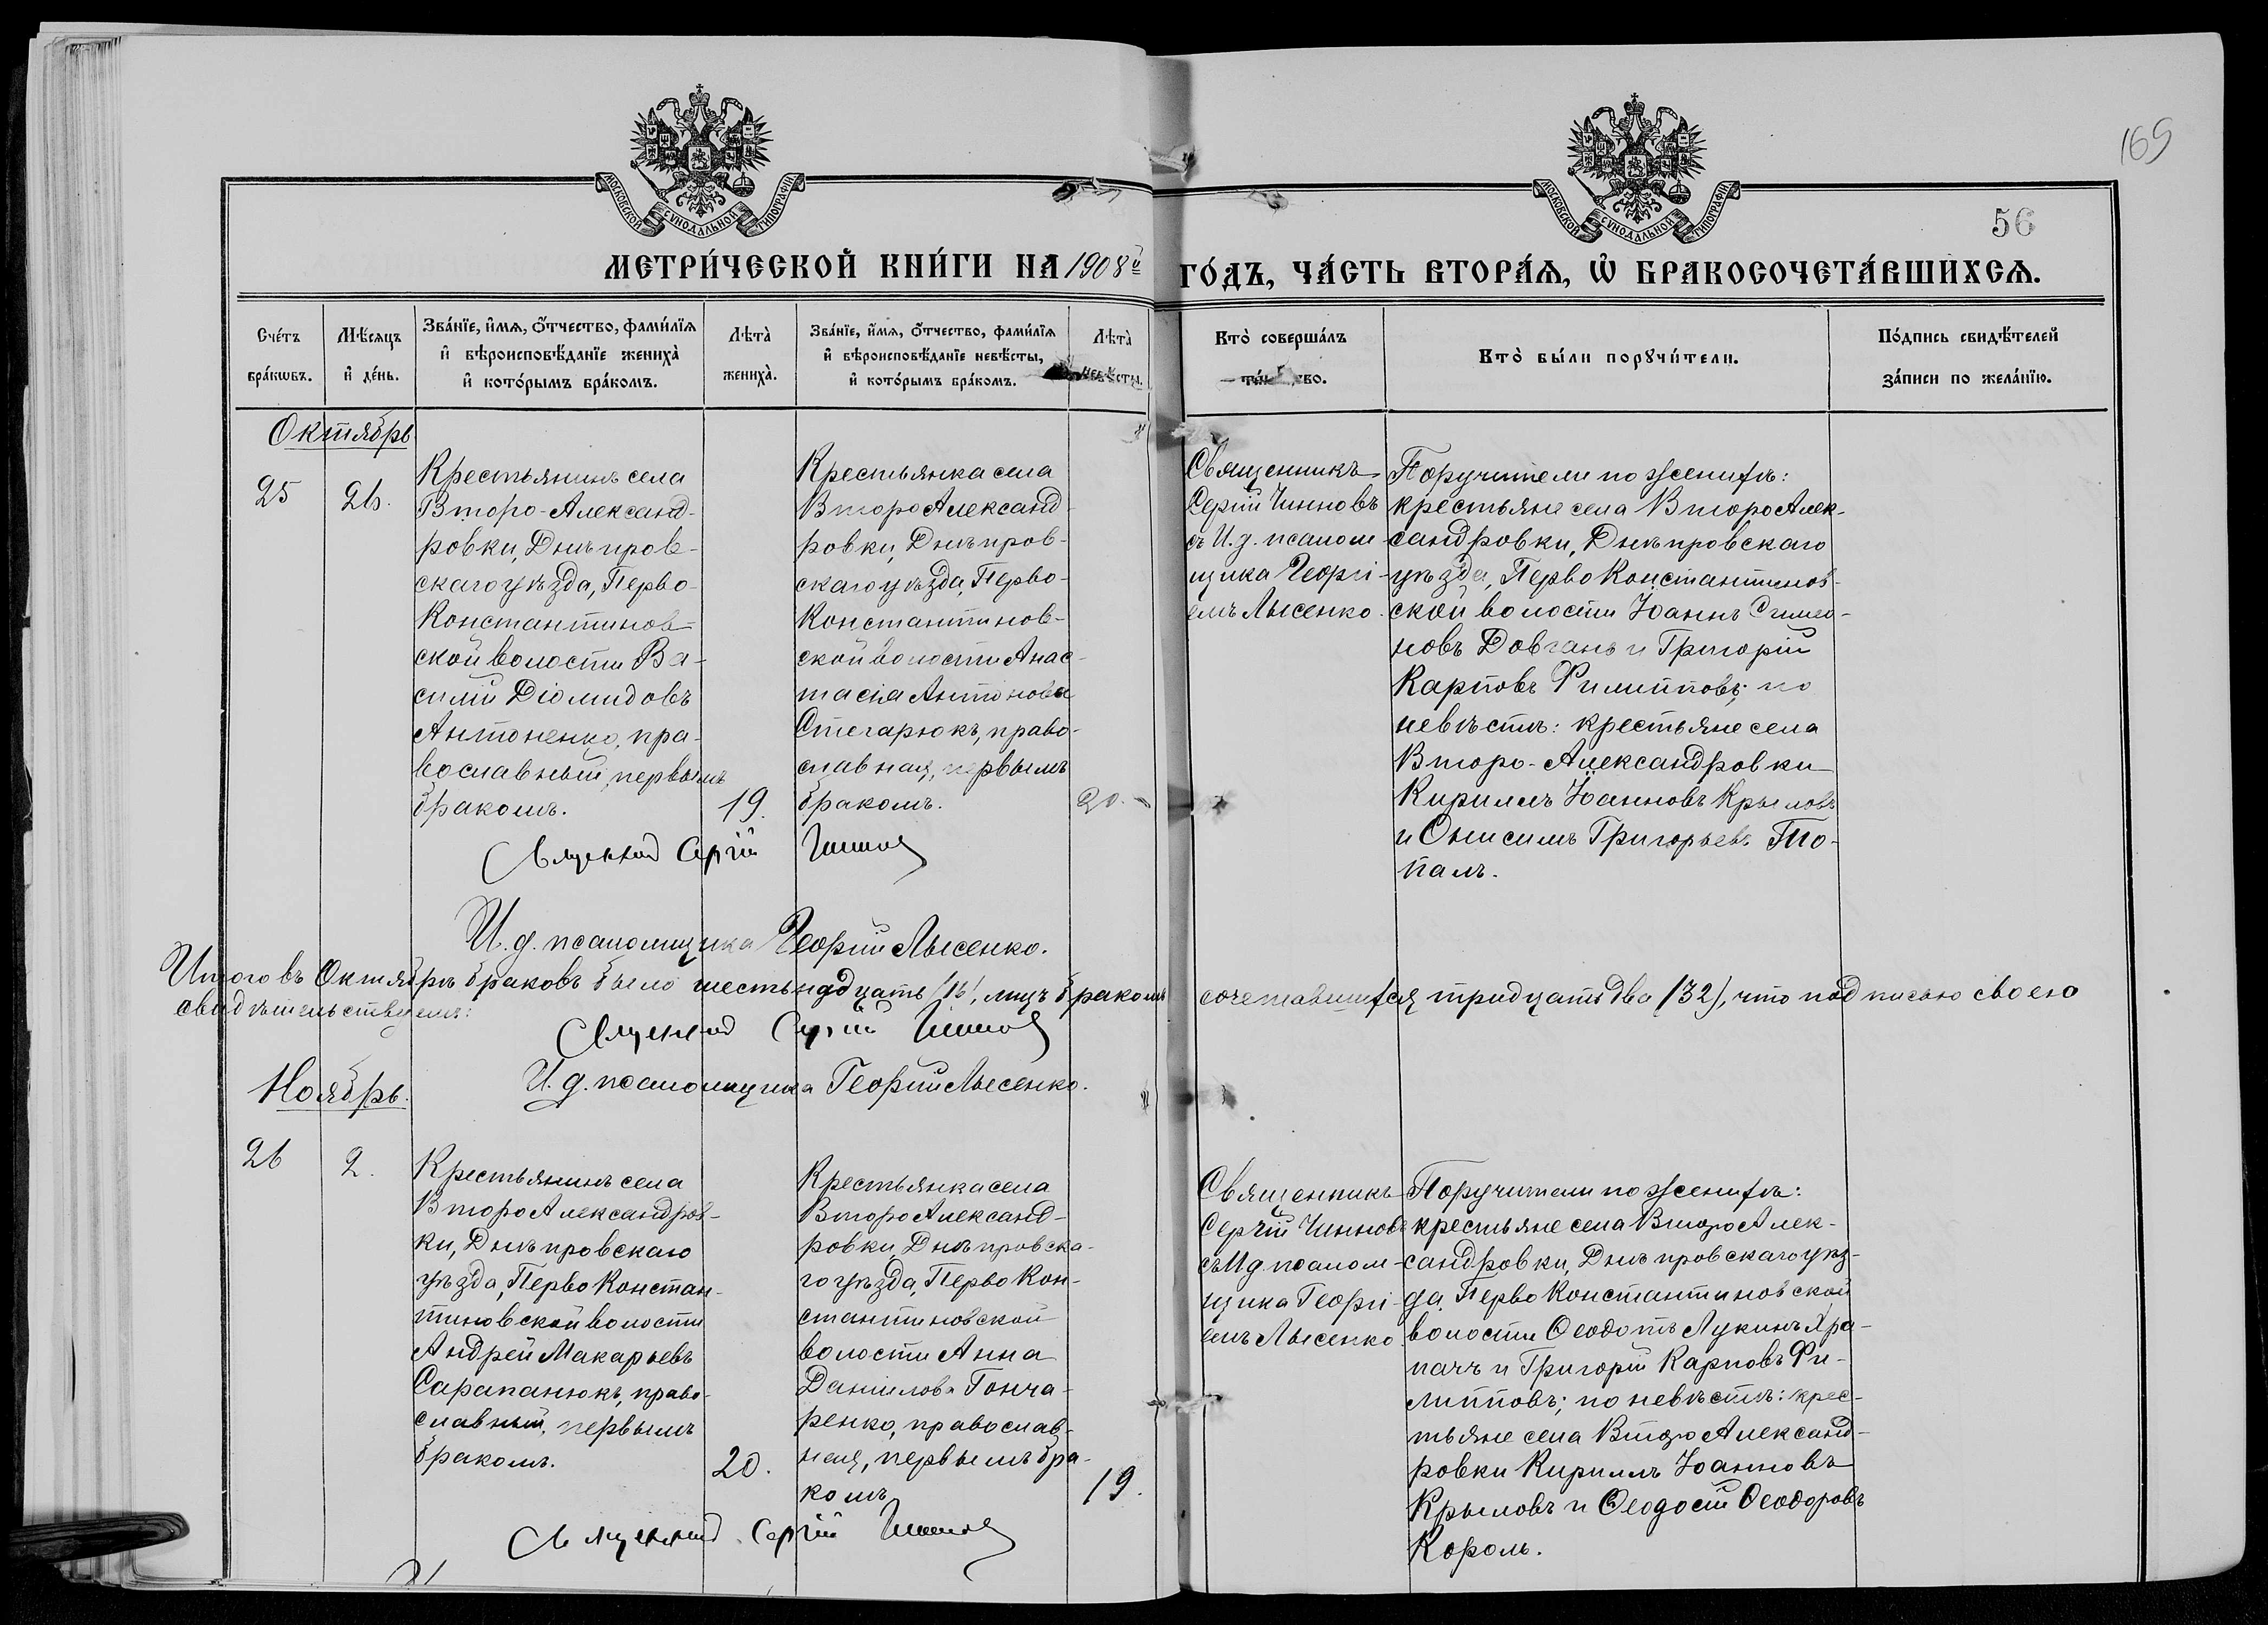 169
56
МОСКОВСКОЙ СѴНОДАЛЬНОЙ ТИПОГРАФІИ
МОСКОВСКОЙ СѴНОДАЛЬНОЙ ТИПОГРАФІИ
МЕТРИ́ЧЕСКОЙ КНИ́ГИ НА 1908й ГО́ДЪ, ЧА́СТЬ ВТОРА́Ѧ, Ѡ҆ БРАКОСОЧЕТА́ВШИХСѦ.
Сче́тъ
бра́кѡвъ.
Мѣ́сяцъ
и҆ де́нь.
Зва́нїе, и҆́мѧ, ѻ҆́тчество, фами́лїѧ
и҆ вѣроисповѣ́данїе жениха̀
и҆ кото́рымъ бра́комъ.
Лѣта̀
жениха̀.
Зва́нїе, и҆́мѧ, ѻ҆́тчество, фами́лїѧ
и҆ вѣроисповѣ́данїе невѣ́сты,
и҆ кото́рымъ бра́комъ.
Лѣта̀
невѣ́сты.
Кто̀ соверша́лъ
та́инство.
Кто̀ бы́ли порꙋчи́тели.
По́дпись свидѣ́телей
за́писи по жела́нїю.
Октябрь
25
26.
Крестьянинъ села
Второ-Александ-
ровки, Днѣпров-
скаго уѣзда, Перво-
Константинов-
ской волости Ва-
силій Діомидовъ
Антоненко, пра-
вославный, первымъ
бракомъ.
19.
Крестьянка села
ВтороАлександ-
ровки, Днѣпров-
скаго уѣзда, Перво-
Константинов-
ской волости Анас-
тасіа Антонова
Стегарюкъ, право-
славная, первымъ
бракомъ.
20.
Священникъ
Сергій Чинновъ
съ И.д. псалом-
щика Георгі-
емъ Лысенко.
Поручители по женихѣ:
крестьяне села ВтороАлек-
сандровки, Днѣпровскаго
уѣзда, ПервоКонстантинов-
ской волости Іоаннъ Симео-
новъ Довгань и Григорій
Карповъ Филипповъ; по
невѣстѣ: крестьяне села
Второ-Александровки
Кириллъ Іоанновъ Крыловъ
и Онисимъ Григорьевъ То-
палъ.
Священник Сергій Чиннов
И.д. псаломщика Георгій Лысенко.
Итого въ Октябрѣ браковъ было шестьнадцать (16), лицъ бракомъ сочетавшихся тридцать два (32), что подписью своею
свидѣтельствуемъ:
Священник Сергій Чиннов
И.д. псаломщика Георгій Лысенко.
Ноябрь.
26
2.
Крестьянинъ села
ВтороАлександров-
ки, Днѣпровскаго
уѣзда, ПервоКонстан-
тиновской волости
Андрей Макарьевъ
Сарапанюкъ, право-
славный, первымъ
бракомъ.
20.
Крестьянка села
ВтороАлександ-
ровки, Днѣпровска-
го уѣзда, ПервоКон-
стантиновской
волости Анна
Даніилова Гонча-
ренко, православ-
ная, первымъ бра-
комъ
19.
Священникъ
Сергій Чинновъ
съ И.д. псалом-
щика Георгі-
емъ Лысенко
Поручители по женихѣ:
крестьяне села ВтороАлек-
сандровки, Днѣпровскаго уѣз-
да, ПервоКонстантиновской
волости Ѳеодотъ Лукинъ Хра-
пачъ и Григорій Карповъ Фи-
липповъ; по невѣстѣ: крес-
тьяне села ВтороАлександ-
ровки Кириллъ Іоанновъ
Крыловъ и Ѳеодосій Ѳеодоровъ
Король.
Священник Сергій Чиннов